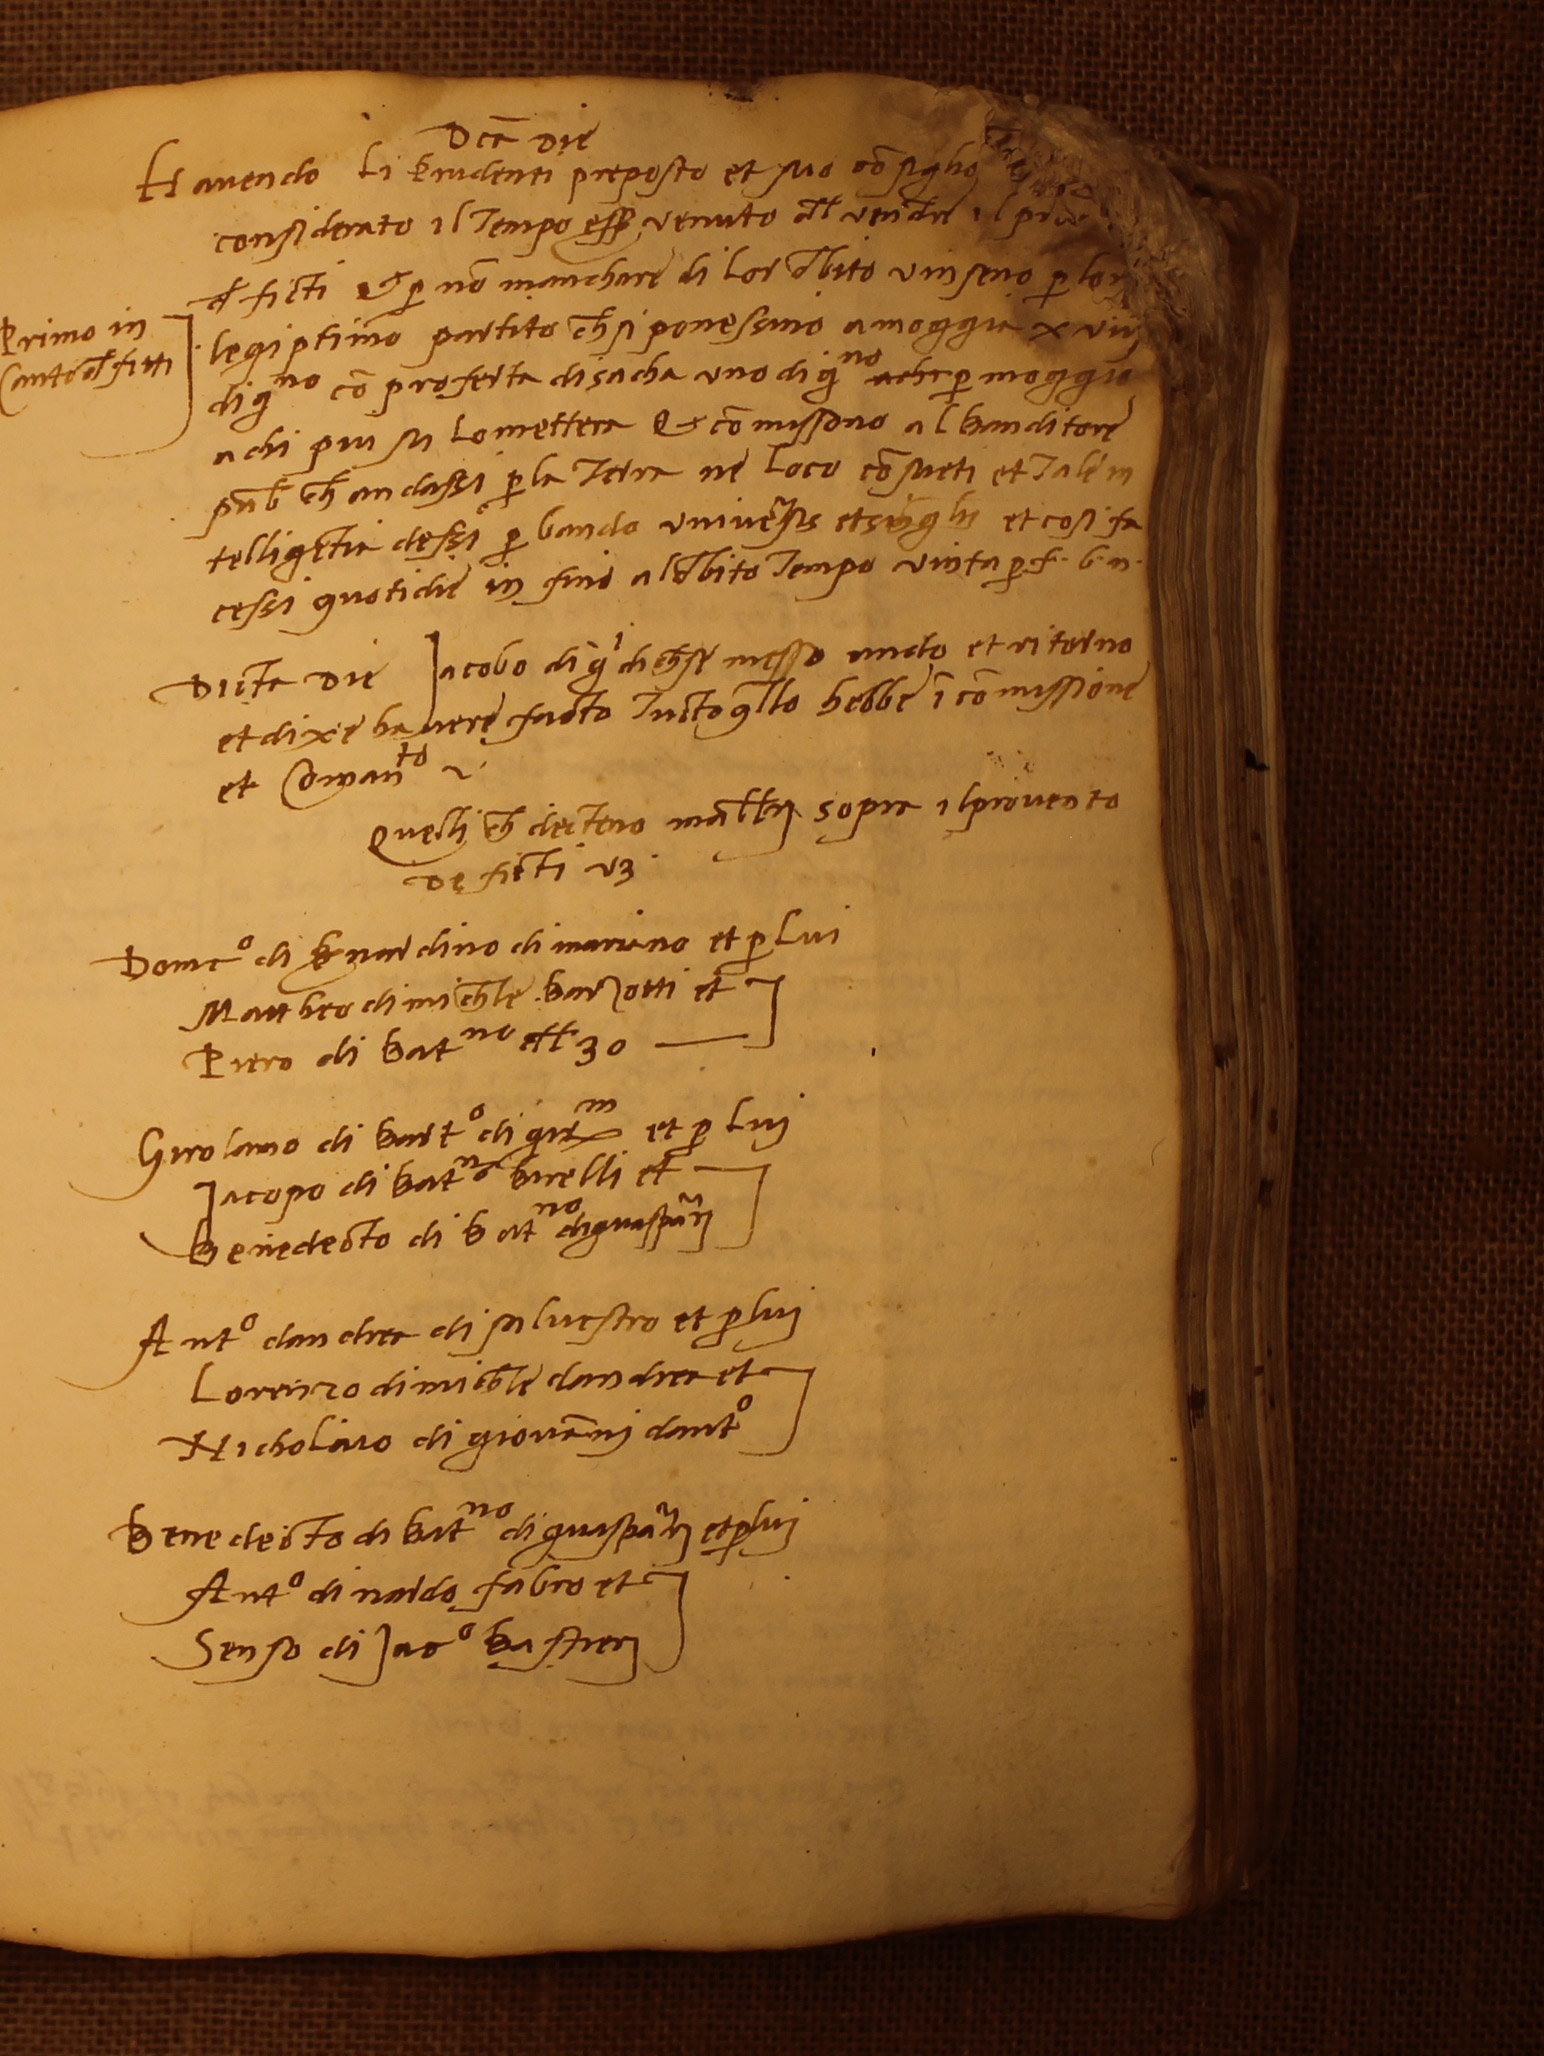 Dcā Die
Havendo Li Prudenti preposto et suo cōsiglio
considerato il Tempo esser venuto del vendere il
de ficti & p nō manchare di lor debito vinseno p lor
legiptimo partito ch si ponessino a moggia xviij
di gno cō proferta di sacha uno di gno p moggio
a chi piu su lo mettera & cōmissono al banditore
pub ch andassi p la Terra ne loco cōsueti et Tale in
telligētia dessi p bando et singhi et cosi fa
cessi quotidie in fino al debito Tempo vinta p. f. b. n.
Primo in
Canto de ficti
Dicta Die Jacobo di messo ando et ritorno
et dixe havere facto Tucto qllo hebbe ī cōmissione
et Comanto
Quelli ch decteno sopra il provento
De ficti vz.
Domco di Bernardino di mariano et p Lui
Mattheo di michle barzotti et
Piero di batno 30
Girolamo di barto di girm et p Lui
Jacopo di batno burelli et
Benedecto di batno di guaspārj
Anto dandrea di salvestro et p lui
Lorenzo di michle dandrea et
Nicholaio di giovānj danto
Benedecto di batno di guaspārj et p luj
Anto di nardo fabro et
Senso di Jaco bastierj